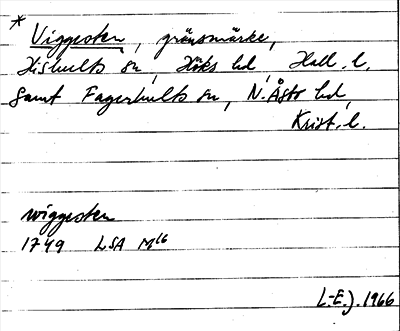 *
Viggesten, gränsmärke,
Hishults sn, Höks hd, Hall. l.
samt Fagerhults sn, N. Åsbo hd,
Krist. l.
wiggesten
1749 LSA M16
L-E.J. 1966